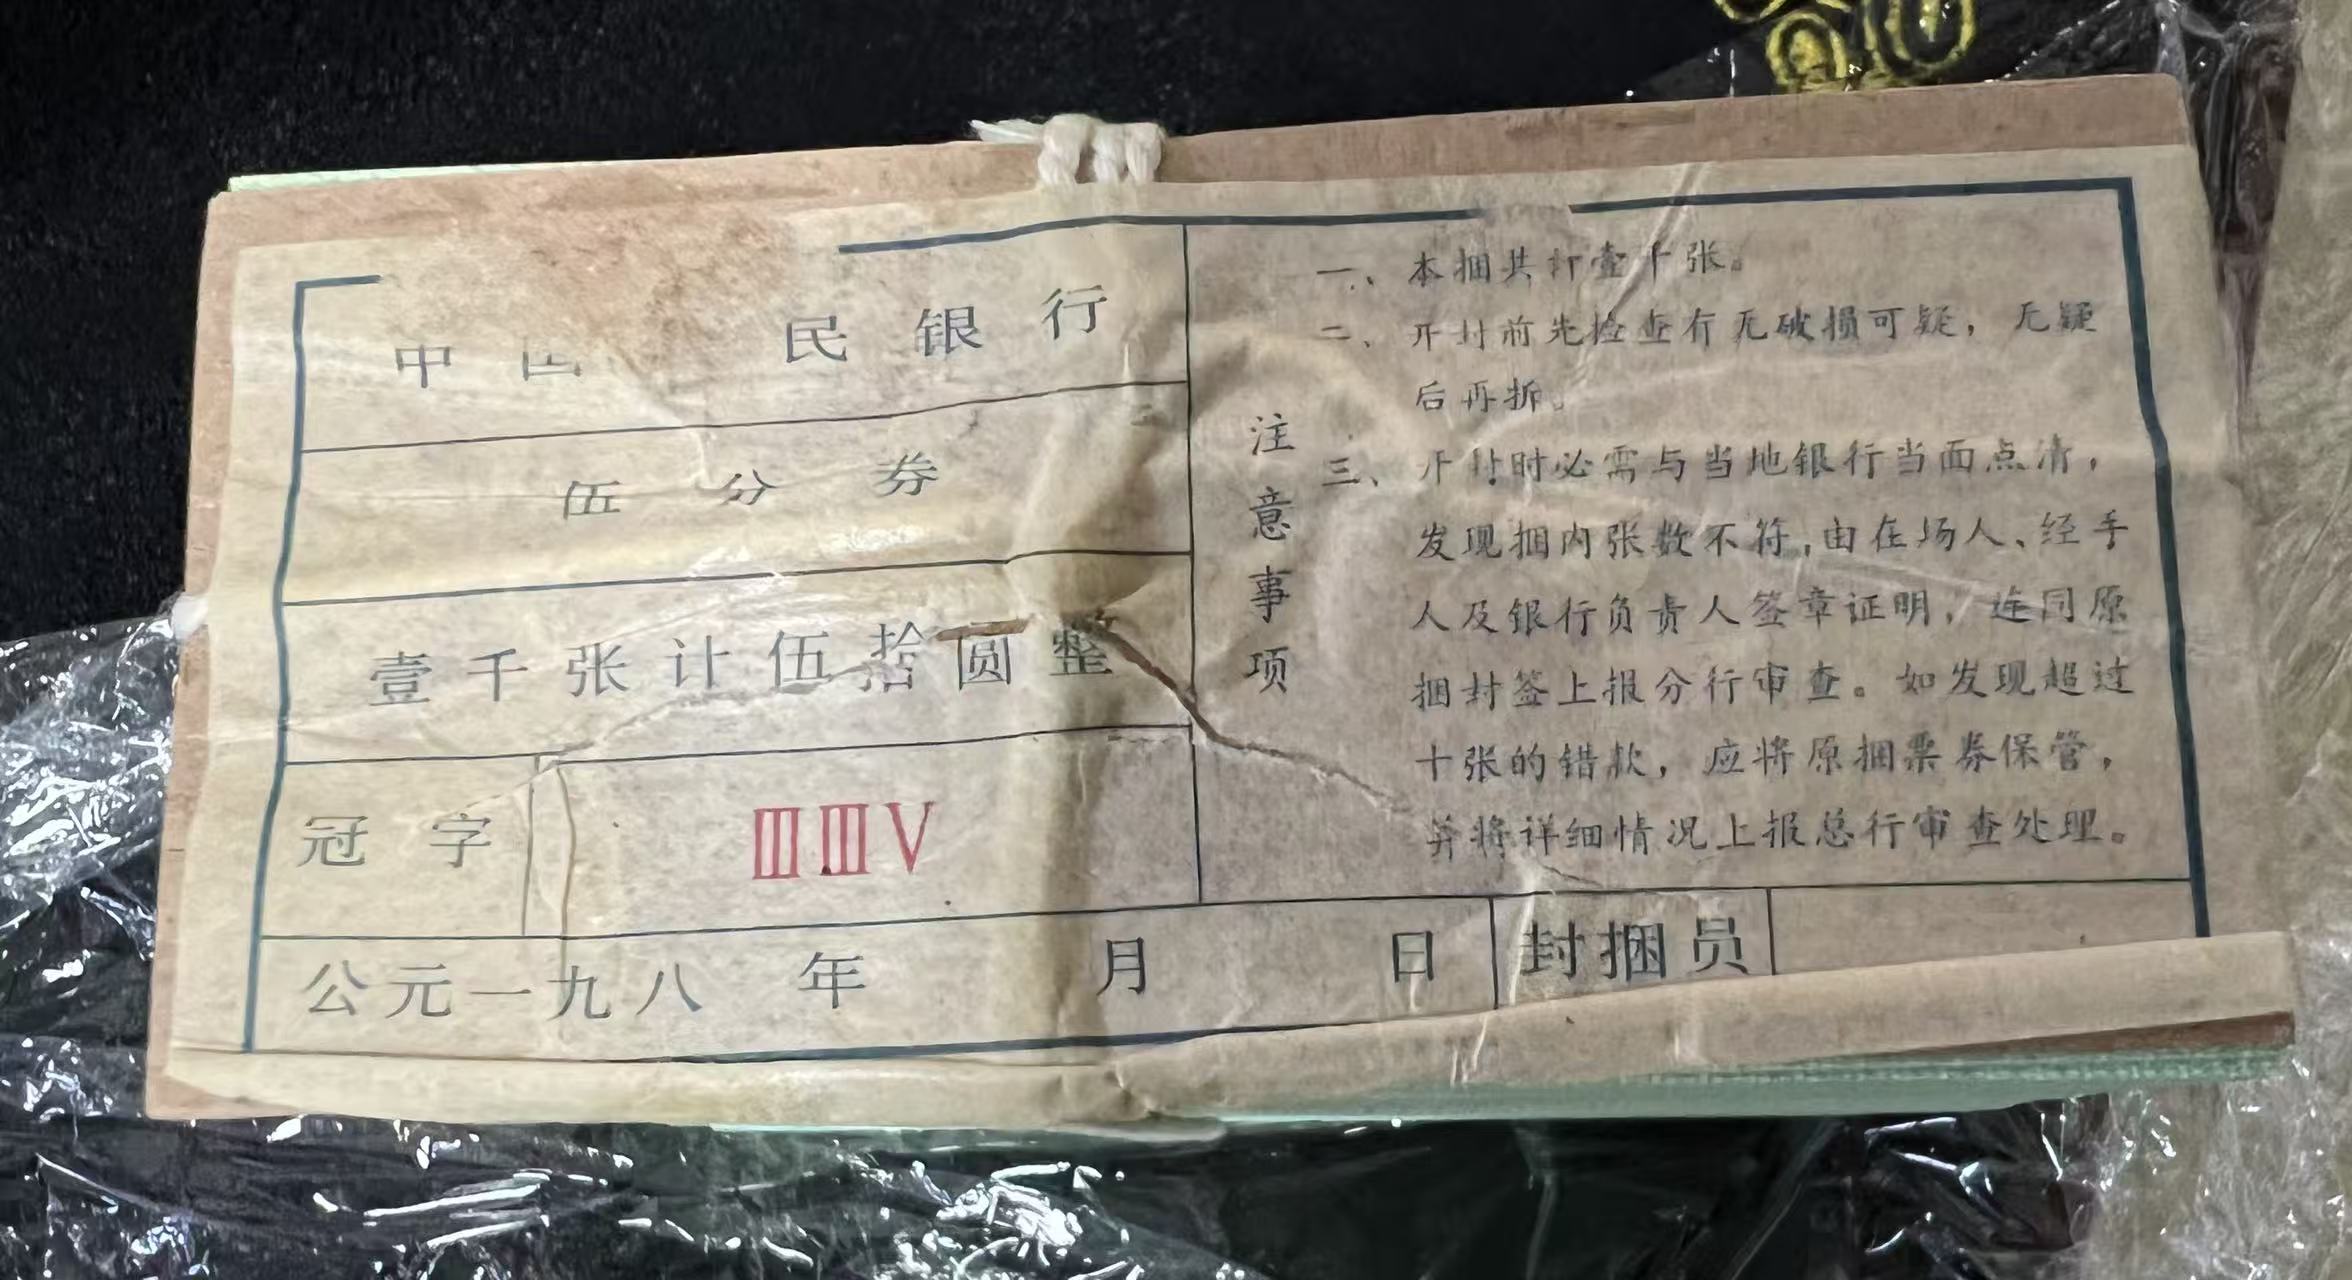 中国 民银行
伍分券
壹千张计伍拾圆整
冠字
ⅢⅢⅤ
注意事项
一、本捆共计壹千张。
二、开封前先检查有无破损可疑，无疑
后再拆。
三、开封时必需与当地银行当面点清，
发现捆内张数不符，由在场人、经手
人及银行负责人签章证明，连同原
捆封签上报分行审查。如发现超过
十张的错款，应将原捆票券保管，
并将详细情况上报总行审查处理。
公元一九八 年 月 日
封捆员